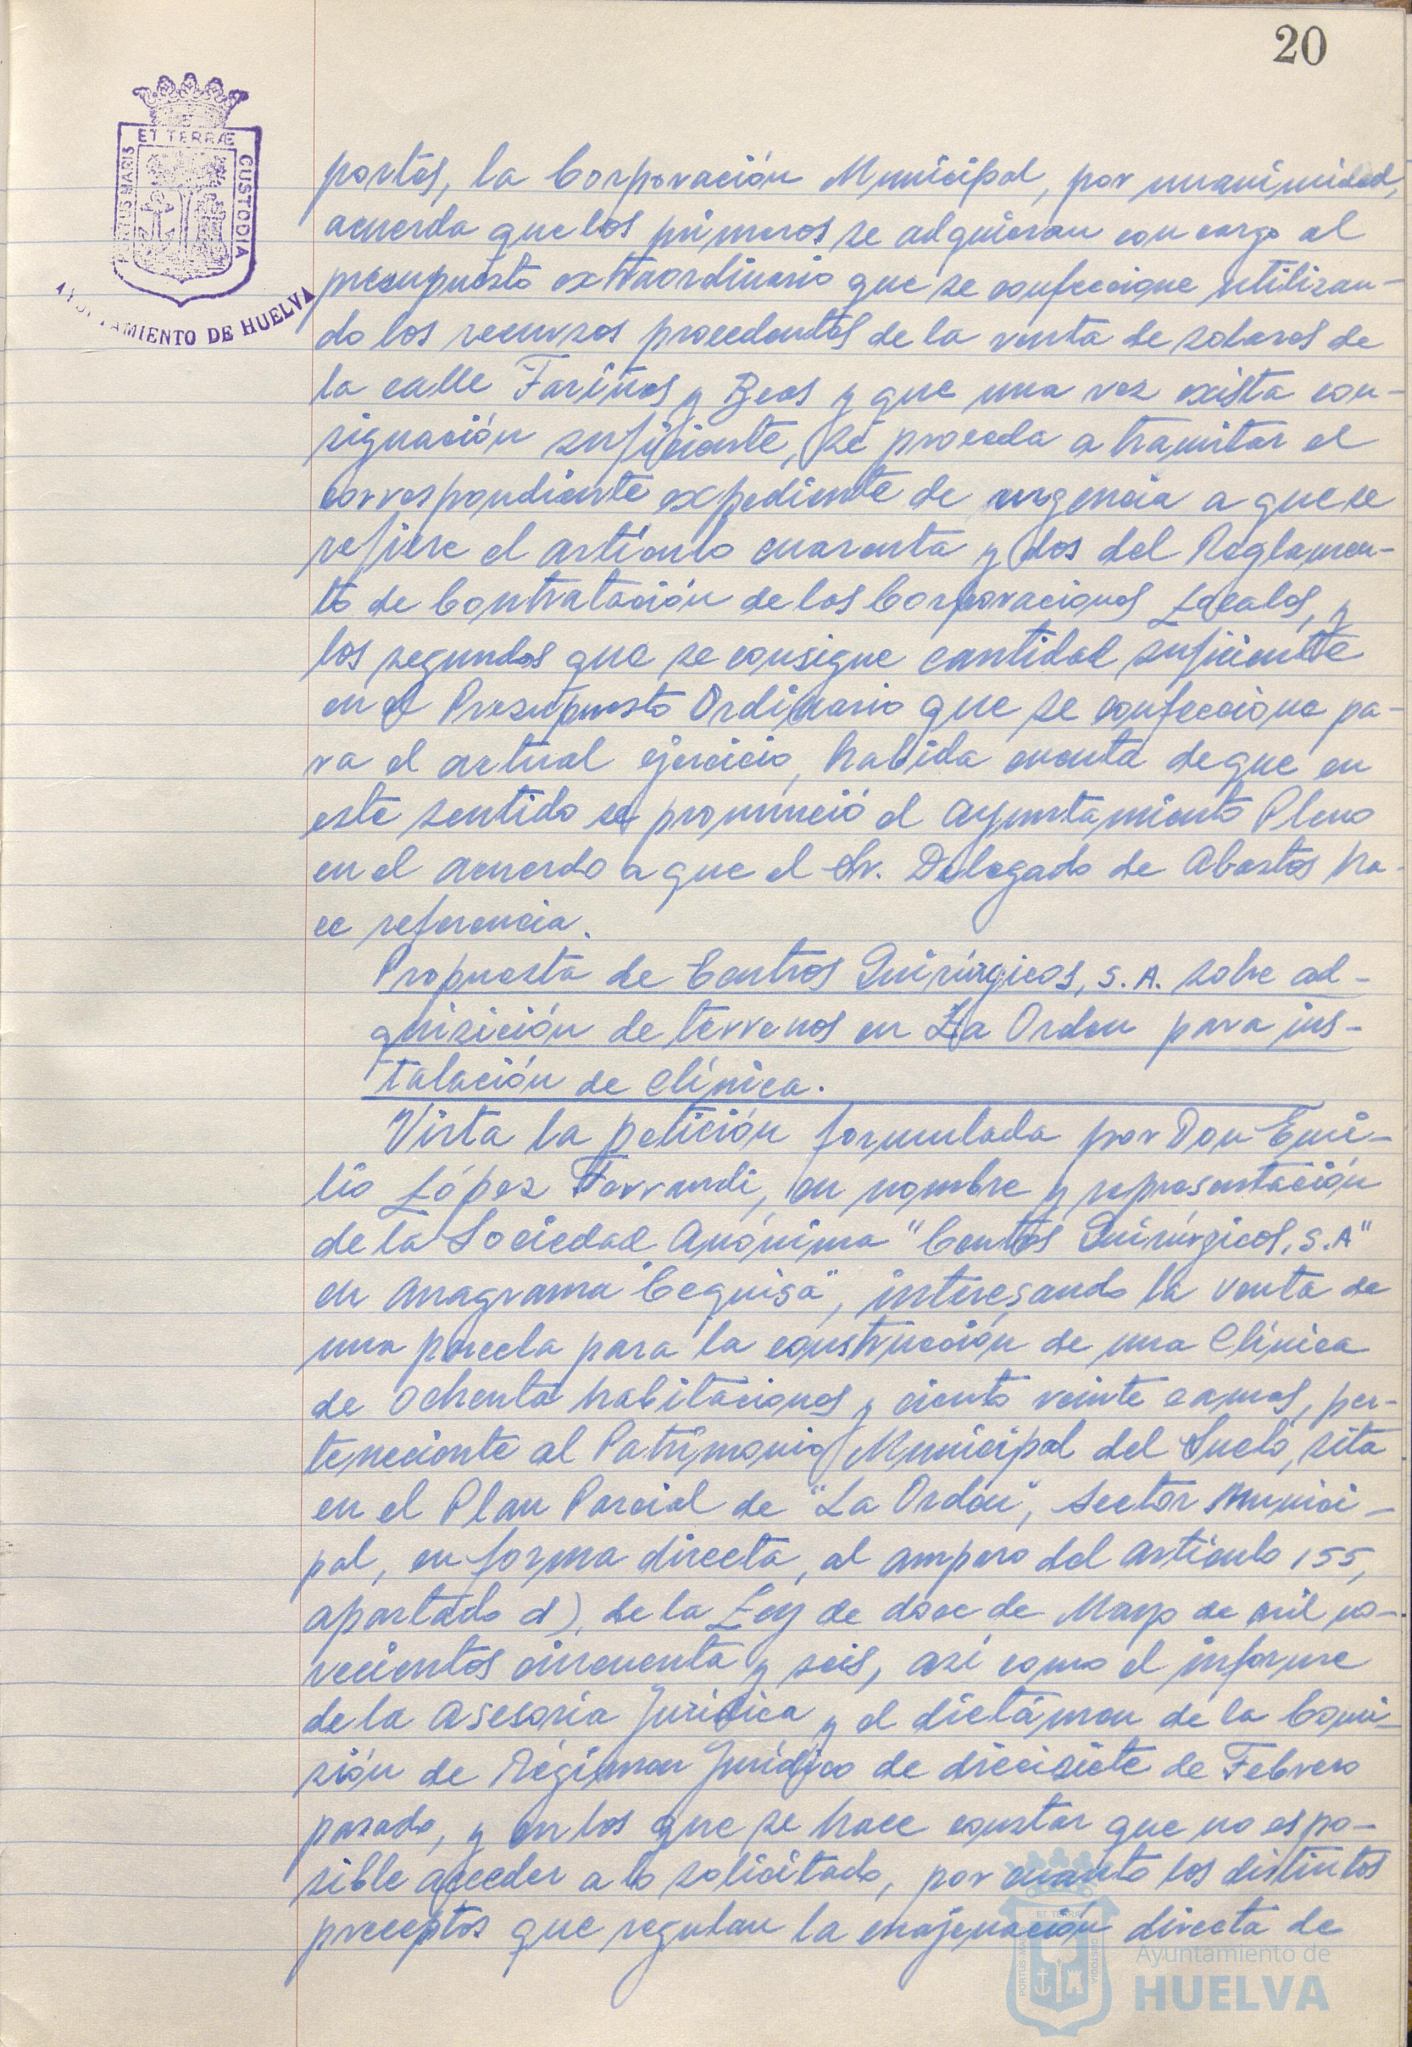 20
ET TERRÆ
PORTUS MARIS
CUSTODIA
AYUNTAMIENTO DE HUELVA
portes, la Corporación Municipal, por unanimidad,
acuerda que los primeros se adquieran con cargo al
presupuesto extraordinario que se confeccione utilizan-
do los recursos procedentes de la venta de solares de
la calle Fariñas y Beas y que una vez exista con-
signación suficiente, se proceda a tramitar el
correspondiente expediente de urgencia a que se
refiere el artículo cuarenta y dos del Reglamen-
to de Contratación de las Corporaciones Locales, y
los segundos que se consigne cantidad suficiente
en el Presupuesto Ordinario que se confeccione pa-
ra el actual ejercicio, habida cuenta de que en
este sentido se pronunció el Ayuntamiento Pleno
en el acuerdo a que el Sr. Delegado de Abastos ha-
ce referencia.
Propuesta de Centros Quirúrgicos, S.A. sobre ad-
quisición de terrenos en La Orden para ins-
talación de clínica.
Vista la petición formulada por Don Emi-
lio López Ferrandi, en nombre y representación
de la Sociedad Anónima "Centros Quirúrgicos, S.A"
en anagrama "Cequisa", interesando la venta de
una parcela para la construcción de una Clínica
de ochenta habitaciones y ciento veinte camas, per-
teneciente al Patrimonio Municipal del Suelo, sita
en el Plan Parcial de "La Orden", sector Munici-
pal, en forma directa, al amparo del artículo 155,
apartado d), de la Ley de doce de Mayo de mil no-
vecientos cincuenta y seis, así como el informe
de la Asesoría Jurídica y el dictámen de la Comi-
sión de Régimen Jurídico de diecisiete de Febrero
pasado, y en los que se hace constar que no es po-
sible acceder a lo solicitado, por cuanto los distintos
preceptos que regulan la enajenación directa de
Ayuntamiento de
HUELVA